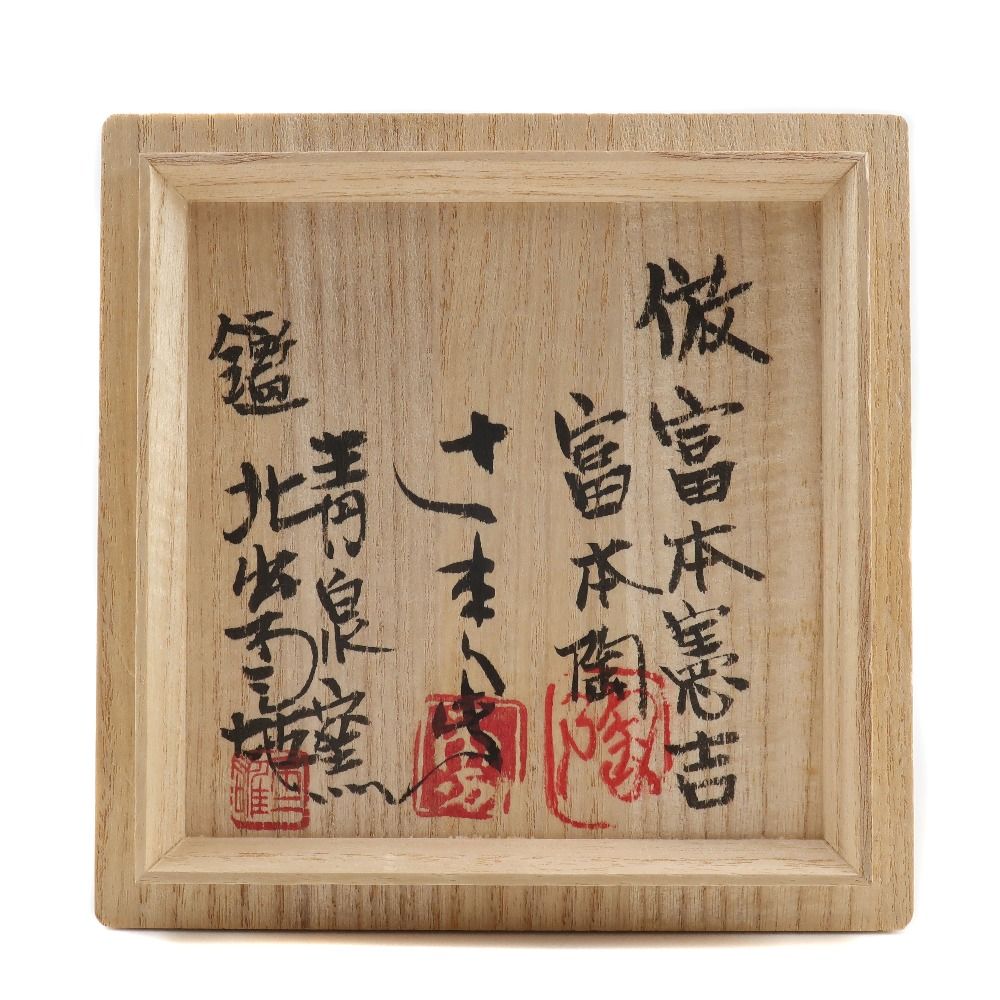 倣富本憲吉
富本陶
辻本
鑑
青泉窯
北出不二雄